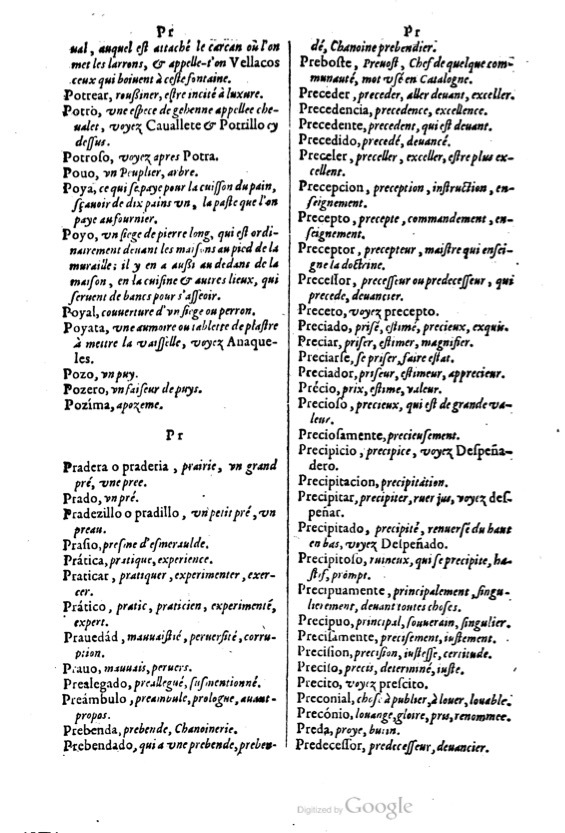 Pr
ual, auquel est attaché le carcan où l'on
met les larrons, & appelle-t'on Vellacos
ceux qui boiuent à ceste fontaine.
Potrear, roußiner, estre incité à luxure.
Potrò, vne espece de gehenne appellee che-
ualet, voyez Cauallete & Potrillo cy
dessus.
Potroso, voyez apres Potra.
Pouo, vn Peuplier, arbre.
Poya, ce qui se paye pour la cuisson du pain,
sçauoir de dix pains vn, la paste que l'on
paye au fournier.
Poyo, vn siege de pierre long, qui est ordi-
nairement deuant les maisons au pied de la
muraille; il y en a außi au dedans de la
maison, en la cuisine & autres lieux, qui
seruent de bancs pour s'asseoir.
Poyal, couuerture d'vn siege ou perron.
Poyata, vne aumoire ou tablette de plastre
à mettre la vaisselle, voyez Anaque-
les.
Pozo, vn puy.
Pozero, vn faiseur de puys.
Pozima, apozeme.
Pr
Pradera o praderia, prairie, vn grand
pré, vne pree.
Prado, vn pré.
Pradezillo o pradillo, vn petit pré, vn
preau.
Prasio, presme d'esmeraulde.
Prática, pratique, experience.
Praticar, pratiquer, experimenter, exer-
cer.
Prático, pratic, praticien, experimenté,
expert.
Prauedád, mauuaistié, peruersité, corru-
ption.
Prauo, mauuais, peruers.
Prealegado, preallegué, susmentionné.
Preámbulo, preambule, prologue, auant-
propos.
Prebenda, prebende, Chanoinerie.
Prebendado, qui a vne prebende, preben-
Pr
dé, Chanoine prebendier.
Preboste, Preuost, Chef de quelque com-
munauté, mot vsé en Catalogne.
Preceder, preceder, aller deuant, exceller.
Precedencia, precedence, excellence.
Precedente, precedent, qui est deuant.
Precedido, precedé, deuancé.
Preceler, preceller, exceller, estre plus ex-
cellent.
Precepcion, preception, instruction, en-
seignement.
Precepto, precepte, commandement, en-
seignement.
Preceptor, precepteur, maistre qui ensei-
gne la doctrine.
Precessor, precesseur ou predecesseur, qui
precede, deuancier.
Preceto, voyez precepto.
Preciado, prisé, estimé, precieux, exquis.
Preciar, priser, estimer, magnifier.
Preciarse, se priser, faire estat.
Preciador, priseur, estimeur, apprecieur.
Précio, prix, estime, valeur.
Precioso, precieux, qui est de grande va-
leur.
Preciosamente, precieusement.
Precipicio, precipice, voyez Despeña-
dero.
Precipitacion, precipitation.
Precipitar, precipiter, ruer jus, voyez des-
peñar.
Precipitado, precipité, renuersé du haut
en bas, voyez Despeñado.
Precipitoso, ruineux, qui se precipite, ha-
stif, prompt.
Precipuamente, principalement, singu-
lierement, deuant toutes choses.
Precipuo, principal, souuerain, singulier.
Precisamente, precisement, iustement.
Precision, precision, iustesse, certitude.
Preciso, precis, determiné, iuste.
Precito, voyez prescito.
Preconial, chose à publier, à louer, louable.
Precónio, louange, gloire, pris, renommee.
Preda, proye, butin.
Predecessor, predecesseur, deuancier.
Digitized by Google